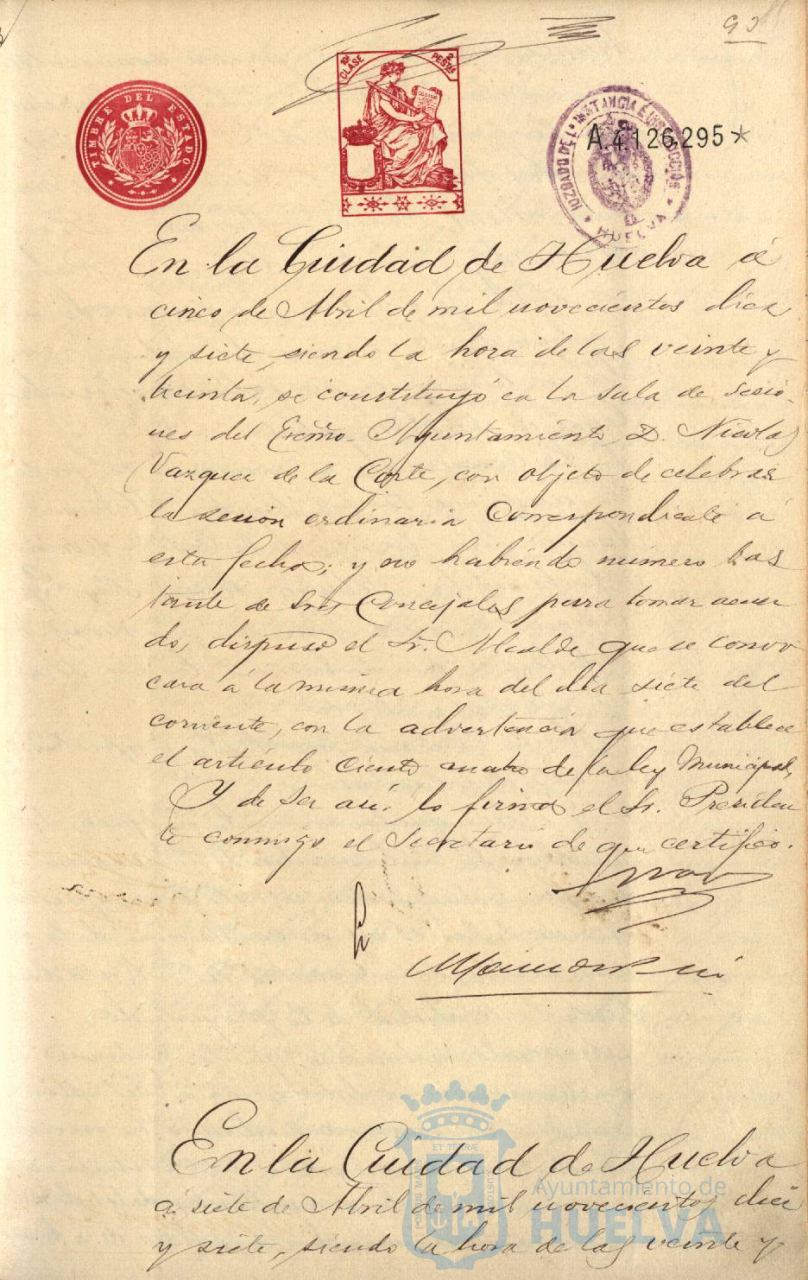 90
TIMBRE DEL ESTADO
10ª CLASE 2 PESTAS
JUZGADO DE 1ª INSTANCIA É INSTRUCCIÓN
HUELVA
A.4.126,295*
En la Ciudad de Huelva á
cinco de Abril de mil novecientos diez
y siete, siendo la hora de las veinte y
treinta, se constituyó en la Sala de Sesio-
nes del Excmo. Ayuntamiento D. Nicolas
Vazquez de la Corte, con objeto de celebrar
la sesión ordinaria correspondiente á
esta fecha; y no habiendo número bas
tante de Sres Concejales para tomar acuer
do, dispuso el Sr. Alcalde que se convo
cara á la misma hora del dia siete del
corriente, con la advertencia que establece
el artículo ciento cuatro de la ley Municipal.
Y de ser así, lo firma el Sr. Presiden
te conmigo el Secretario de que certifico.
En la Ciudad de Huelva
á siete de Abril de mil novecientos diez
y siete, siendo la hora de las veinte y
Ayuntamiento de
HUELVA